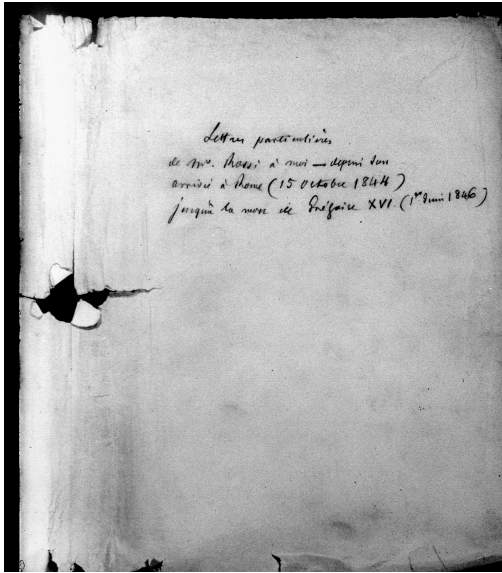 Lettres particulières
de Mr. Rossi à moi — depuis son
arrivée à Rome (15 octobre 1844)
jusqu'à la mort de Grégoire XVI. (1er Juin 1846)